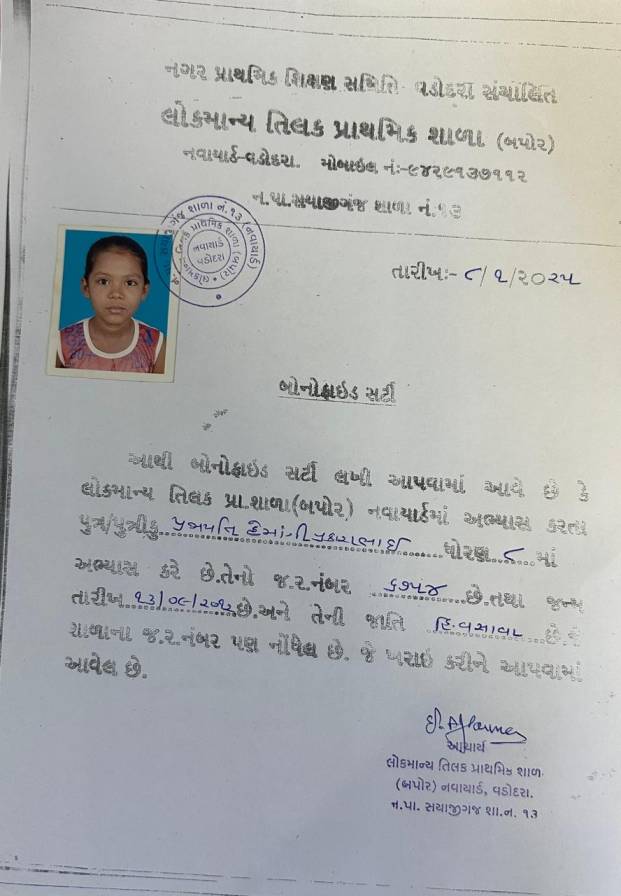 નગર પ્રાથમિક શિક્ષણ સમિતિ વડોદરા સંચાલિત
લોકમાન્ય તિલક પ્રાથમિક શાળા (બપોર)
નવાયાર્ડ-વડોદરા. મોબાઇલ નં:-૯૪૨૯૧૩૭૧૧૨
ન.પા.સયાજીગંજ શાળા નં.૧૩
નવાયાર્ડ
વડોદરા
તારીખઃ- ૮/૧/૨૦૨૫
બોનોફાઇડ સર્ટી
આથી બોનોફાઇડ સર્ટી લખી આપવામાં આવે છે કે
લોકમાન્ય તિલક પ્રા.શાળા(બપોર) નવાયાર્ડમાં અભ્યાસ કરતા
પુત્ર/પુત્રીકુ ધોરણ ૮ માં
અભ્યાસ કરે છે.તેનો જ.ર.નંબર ૬૭૫૪ છે.તથા જન્મ
તારીખ ૧૩/૦૯/૨૦૧૨ છે.અને તેની જાતિ છે.જે
શાળાના જ.ર.નંબર પણ નોંધેલ છે. જે ખરાઇ કરીને આપવામાં
આવેલ છે.
આચાર્ય
લોકમાન્ય તિલક પ્રાથમિક શાળા
(બપોર) નવાયાર્ડ, વડોદરા.
ન.પા. સયાજીગજ શા.ન. ૧૩